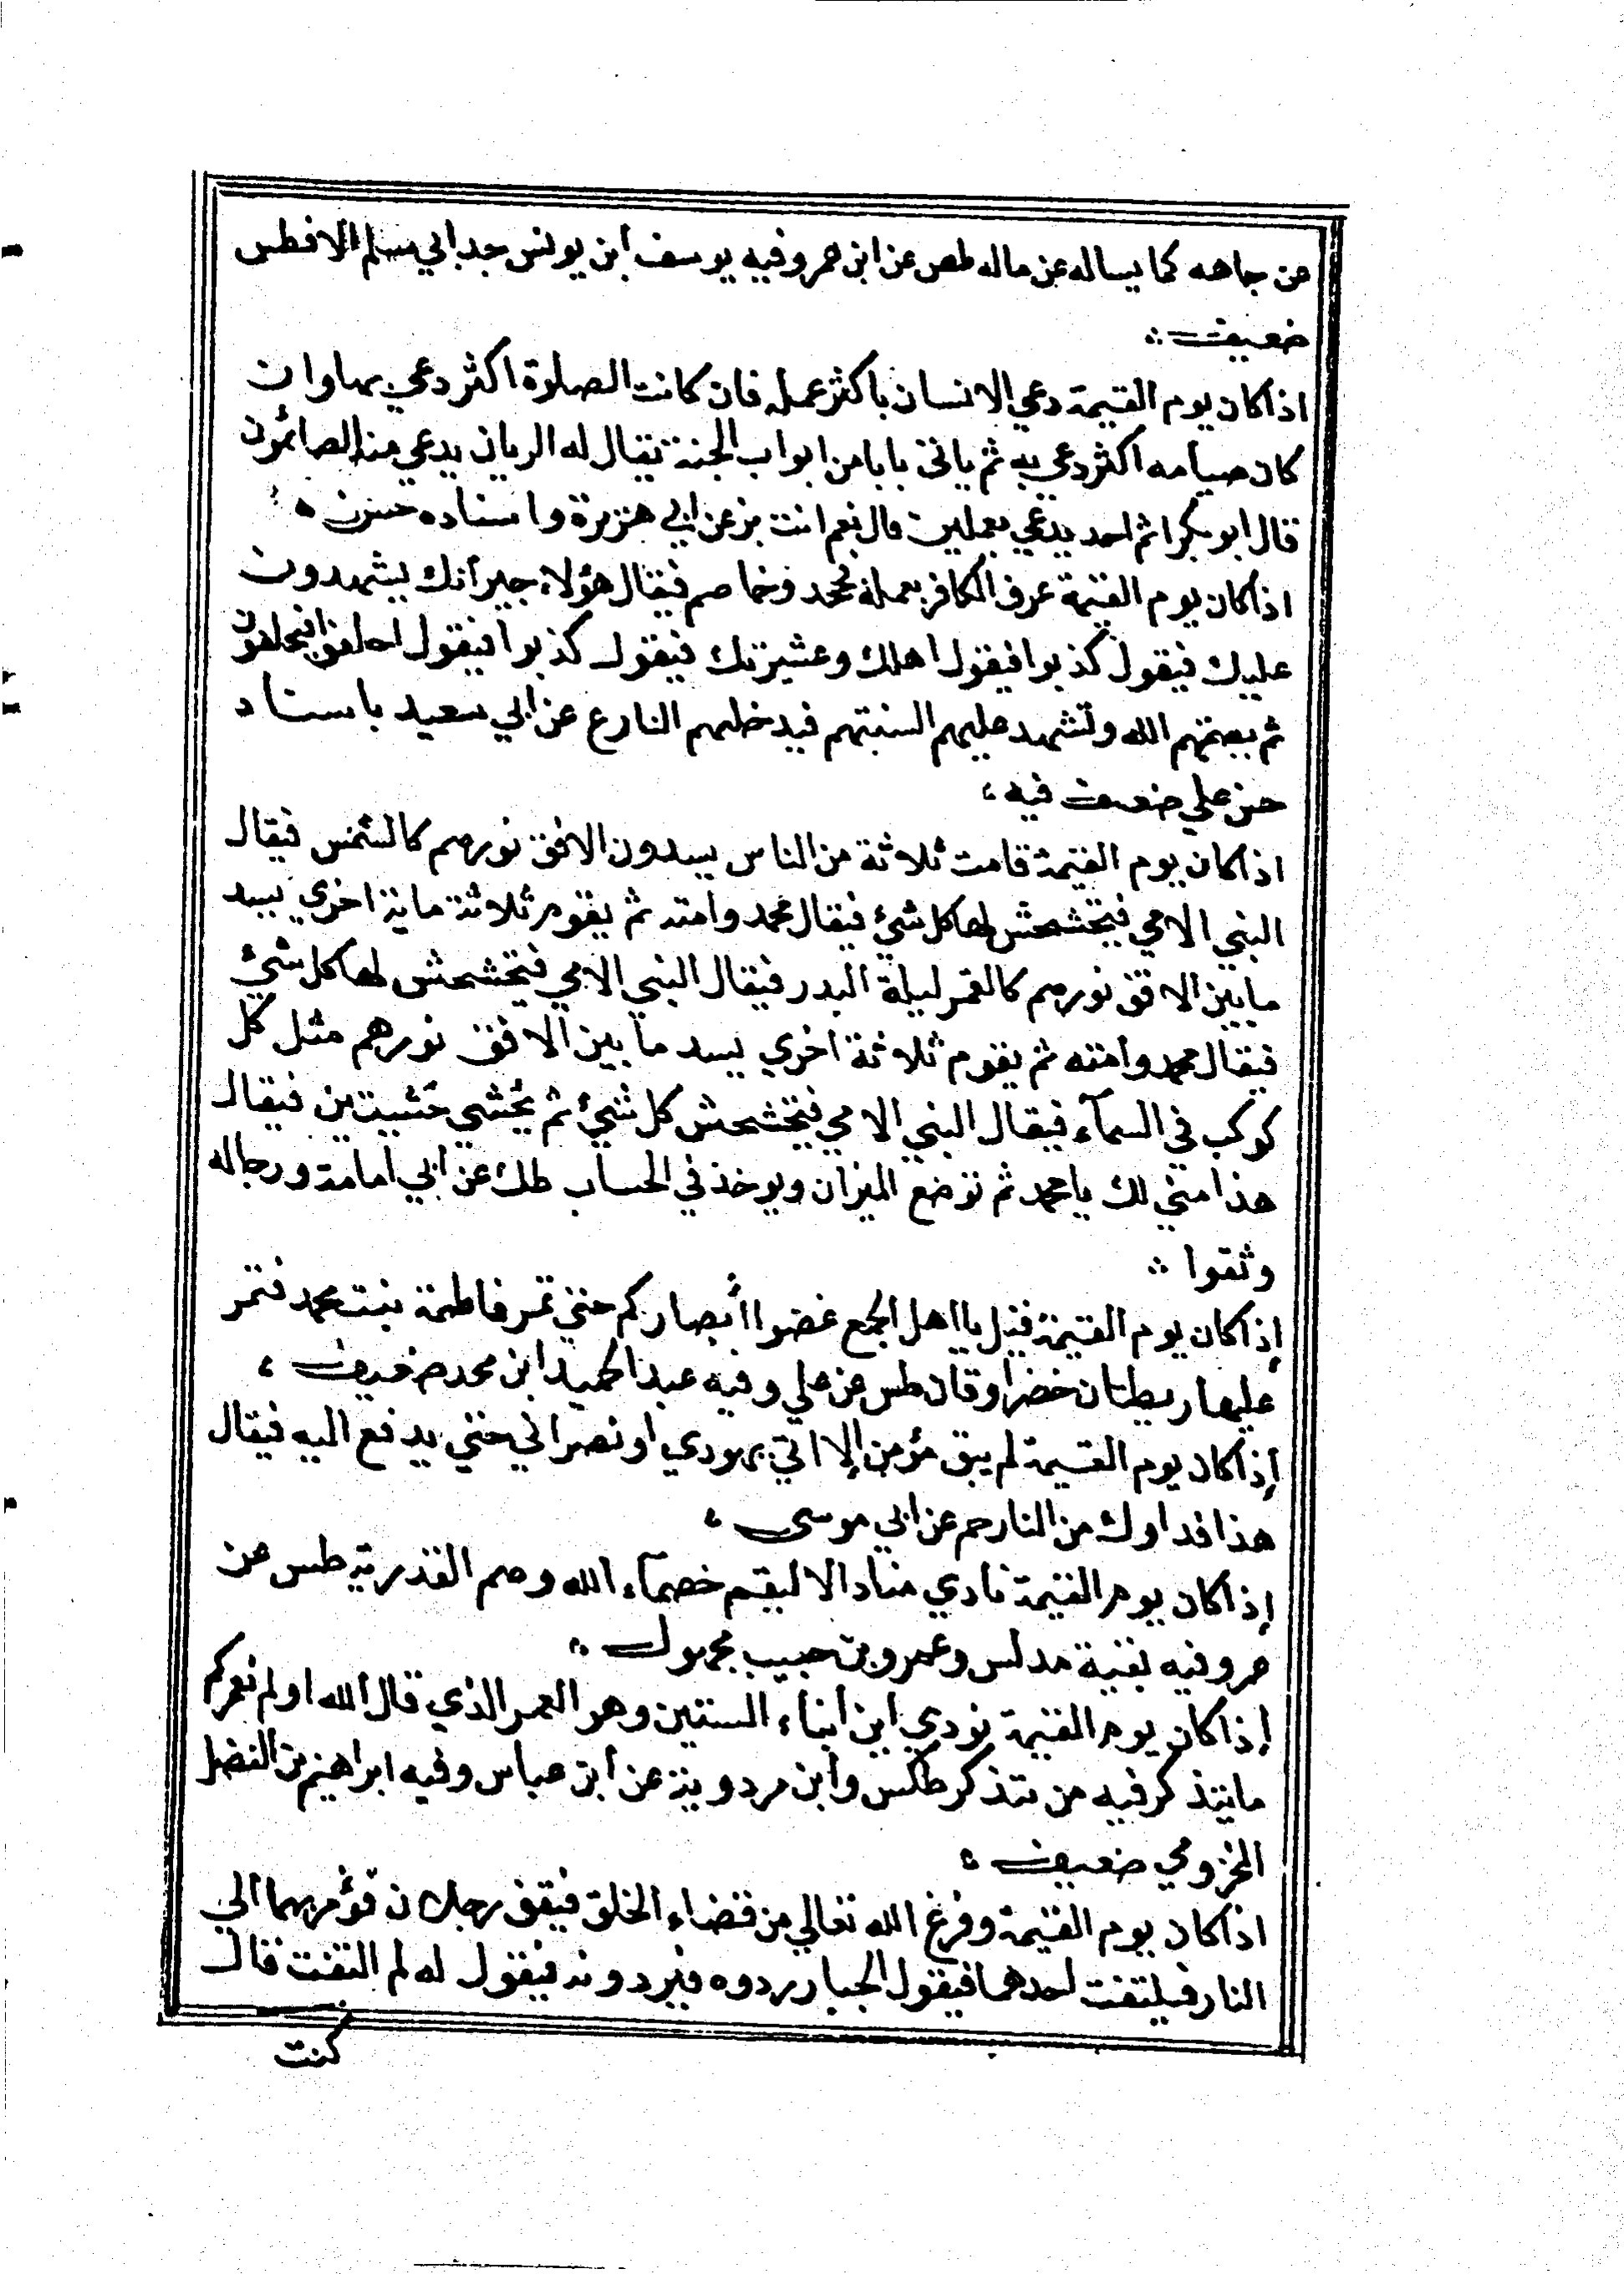 عن جاهه كما يساله عن ماله طص عن ابن عمر وفيه يوسف ابن يونس جد ابي مسلم الافطس
ضعيف
اذا كان يوم القيمة دعي الانسان باكثر عمله فان كانت الصلوة اكثر دعي بها وان
كان صيامه اكثر دعي به ثم ياتى بابا من ابواب الجنة يقال له الريان يدعي منه الصائمون
قال ابو بكر اثم احمد يدعي بعملين قال نعم انت بز عن ابي هريرة واسناده حسن
اذا كان يوم القيمة عرف الكافر بعمله فجحد وخاصم فيقال هؤلاء جيرانك يشهدون
عليك فيقول كذبوا فيقول اهلك وعشيرتك فيقول كذبوا فيقول احلفوا فيحلفون
ثم يصمتهم الله وتشهد عليهم السنتهم فيدخلهم النار ع عن ابي سعيد باسناد
حسن علي ضعف فيه
اذا كان يوم القيمة قامت ثلاثة من الناس يسدون الافق نورهم كالشمس فيقال
النبي الامي فيتخشحش لها كل شيئ فيقال محمد وامته ثم يقوم ثلاثة ماية اخري يسد
ما بين الافق نورهم كالقمر ليلة البدر فيقال النبي الامي فيتخشحش لها كل شيئ
فيقال محمد وامته ثم يقوم ثلاثة اخري يسد ما بين الافق نورهم مثل كل
كوكب في السمآء فيقال النبي الامي فيتخشحش كل شيئ ثم يحثي حثيتين فيقال
هذا مني لك يا محمد ثم توضع الميزان ويوخذ في الحساب طك عن ابي امامة ورجاله
وثقوا
إذا كان يوم القيمة قيل يا اهل الجمع غضوا أبصاركم حتي تمر فاطمة بنت محمد فتمر
عليها ريطتان خضراوقان طس عن علي وفيه عبد الحميد ابن محمد ضعيف
إذا كان يوم القيمة لم يبق مؤمن إلا اتي بيهودي او نصراني حتي يدفع اليه فيقال
هذا فداوك من النار حم عن ابي موسى
إذا كان يوم القيمة نادي مناد الا ليقم خصمآء الله وهم القدرية طس عن
عمر وفيه بقية مدلس وعمرو بن حبيب مجهول
إذا كان يوم القيمة نودي اين ابناء الستين وهو العمر الذي قال الله اولم نعمركم
ما يتذكر فيه من تذكر طكس وابن مردوية عن ابن عباس وفيه ابراهيم بن الفضل
المخزومي ضعيف
اذا كان يوم القيمة وفرغ الله تعالي من قضاء الخلق فيقف رجلان فيؤمر بهما الي
النار فيلتفت احدهما فيقول الجبار ردوه فيردونه فيقول له لم التفت قال
كنت